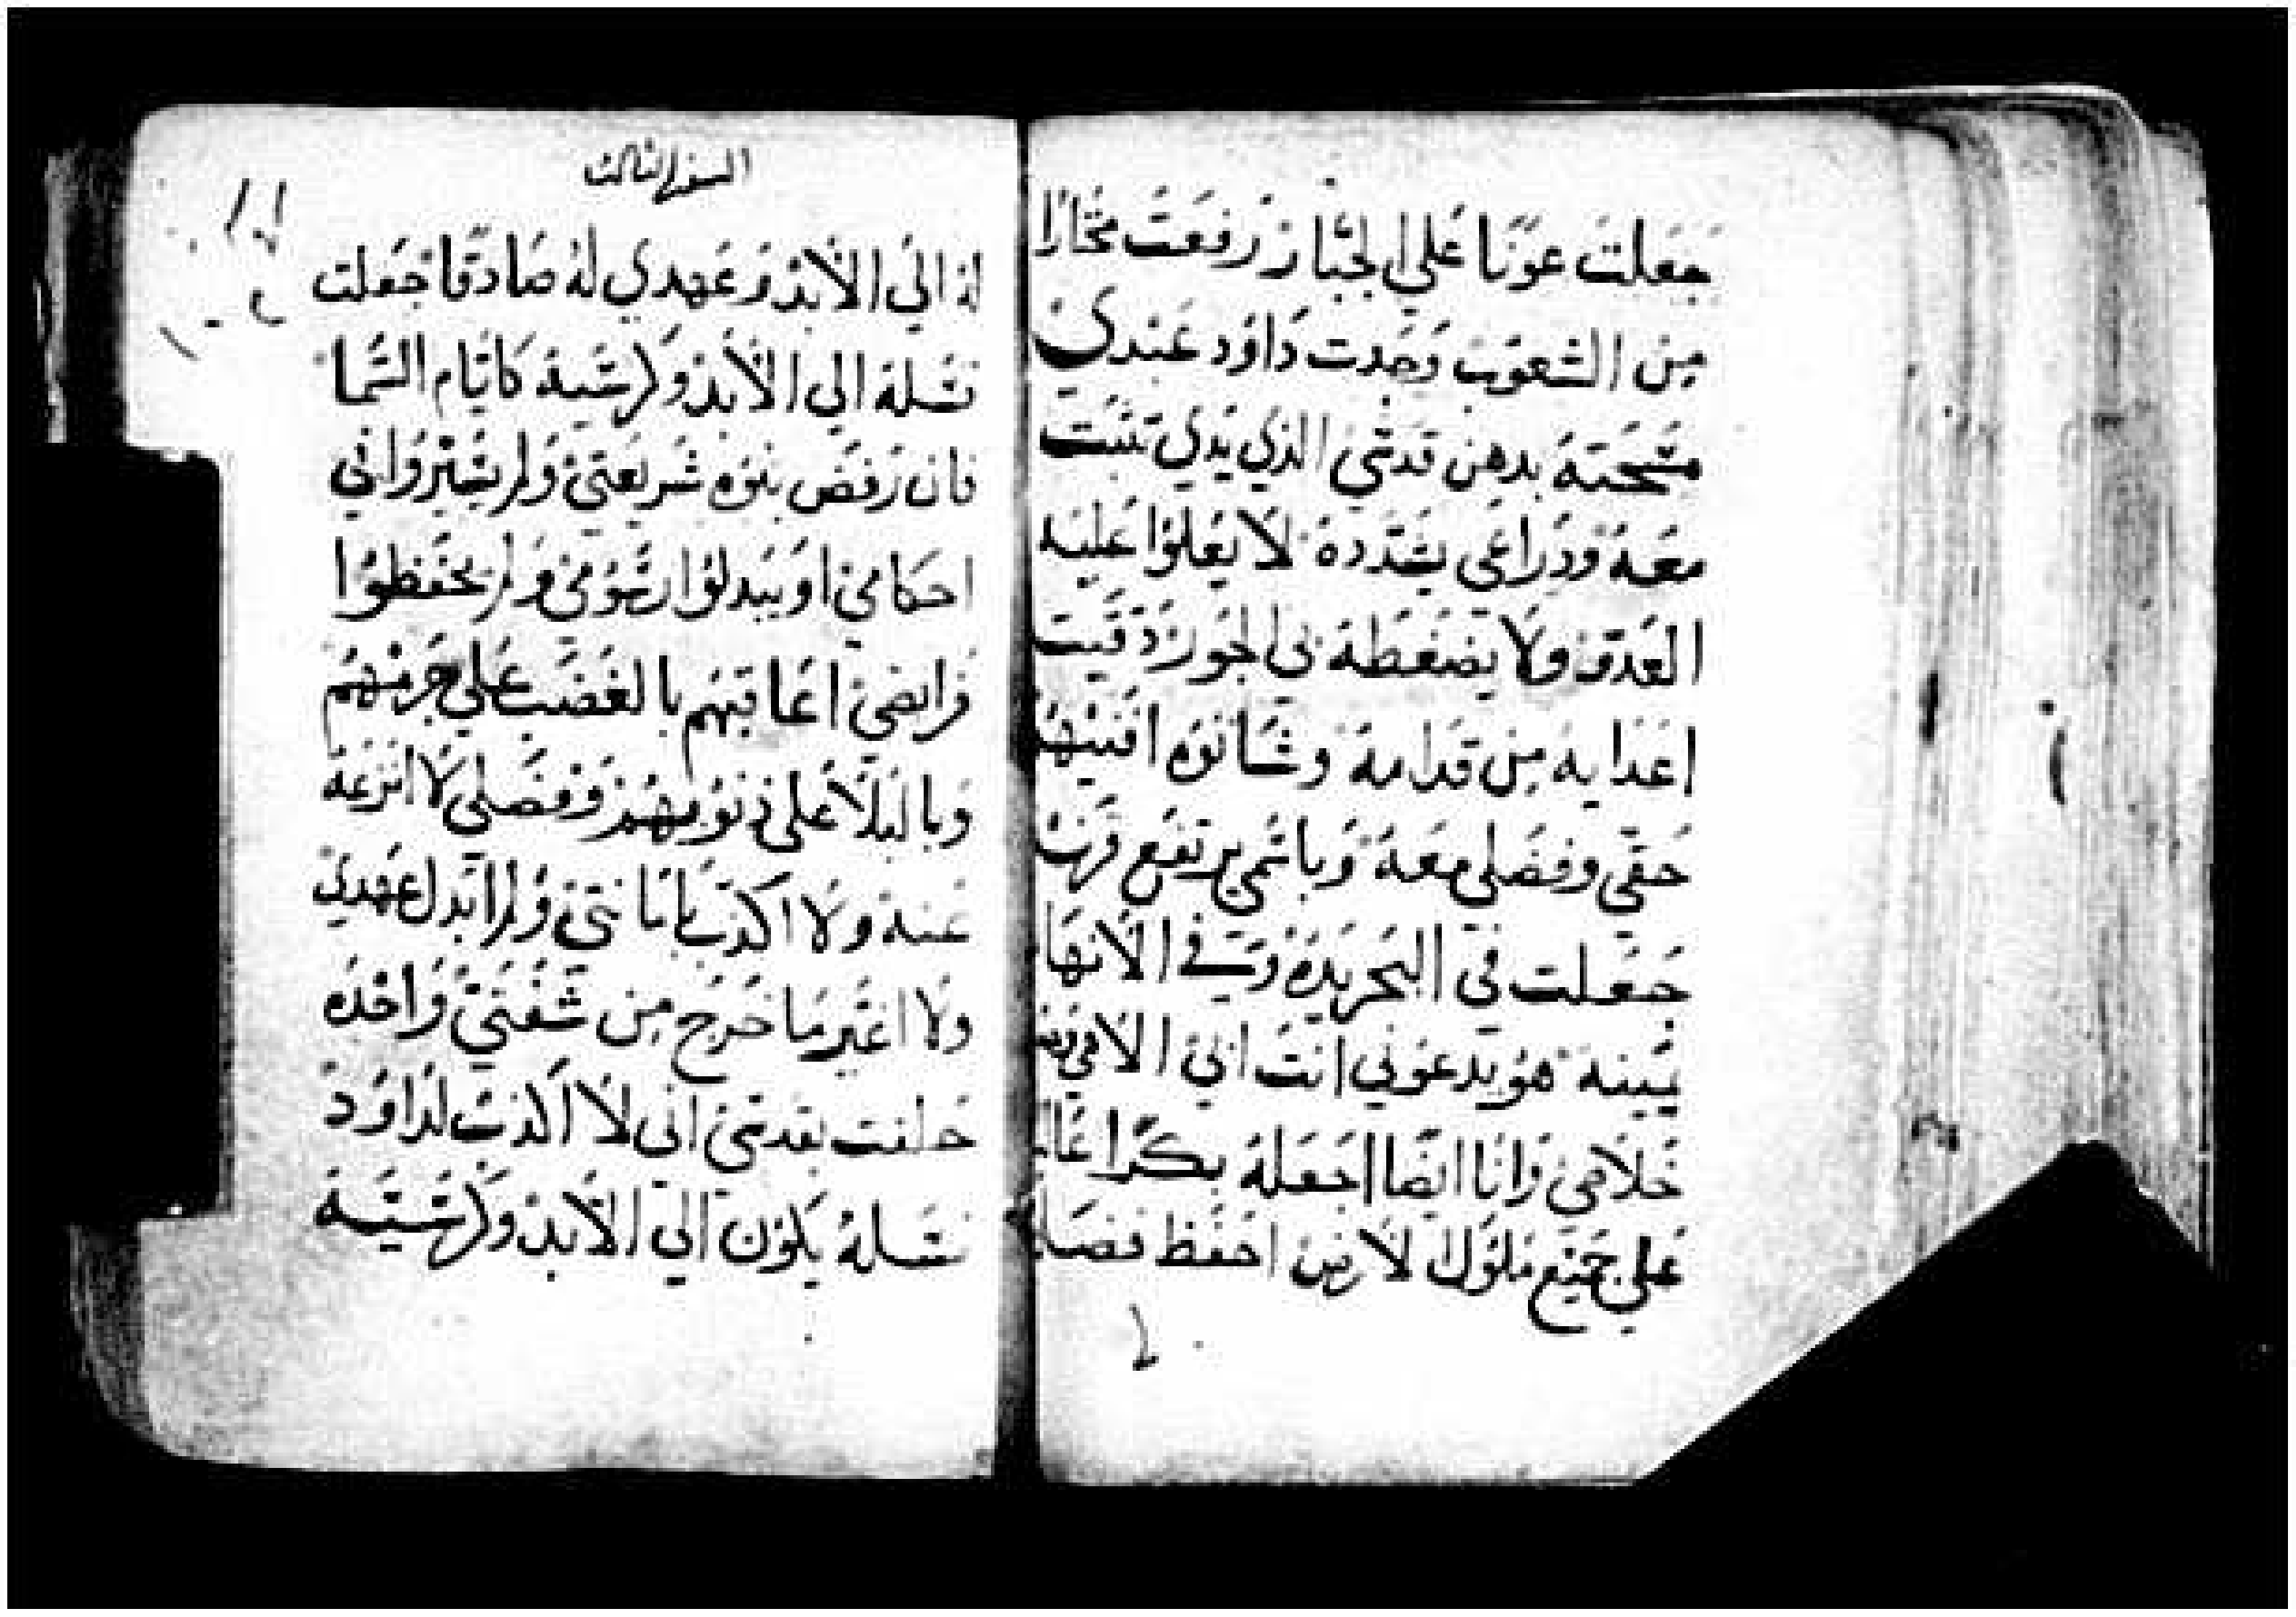 جَعَلتَ عَونًا عَلي الجَبَّار رَفعَتَ مُختارًا
مِن الشعَوب وَجَدت دَاوُد عَبْدي
مَسَحَتهُ بدهن قدسَي الذي يَدي تثبت
معَهُ ودرَاعَي يشدده لا يَعلوا عَليه
العَدوّ ولا يضغَطهُ بن الجور دقيت
اعَدايه مِن قدامهُ وشانوه افنيتهم
حَقي وفضلي معَهُ وباسمي يرتفع قرنه
جَعَلت في البَحر يَدهُ وَفي الانهار
يمينهُ هو يدعوني انت ابي الاهي
خلاصي وانا ايضا اجعلهُ بكرًا
عَلي جميع ملوك الارض احفظ
السفر الثالث
لهُ الي الابد وعَهدي لهُ صَادقا جعلت
نسَلهُ الي الابد وكرسَيهُ كايام السَما
فان رفض بنوه شريعَتي ولم يسيروا في
احكامي او يبدلوا رسومي ولم يحفظوا
فرايضي اعَاقبهم بالغضب عَلي جرمهم
وبالبلا عَلي ذنوبهم وفضلي لا انزعهُ
عنهُ ولا اكذب بامانتي ولم ابدل عهدي
ولا اغيّر ما خرج من شفتي واحده
حلفت بقدسي اني لا اكذب لداوود
نسَلهُ يكون الي الابد وكرسَيهُ